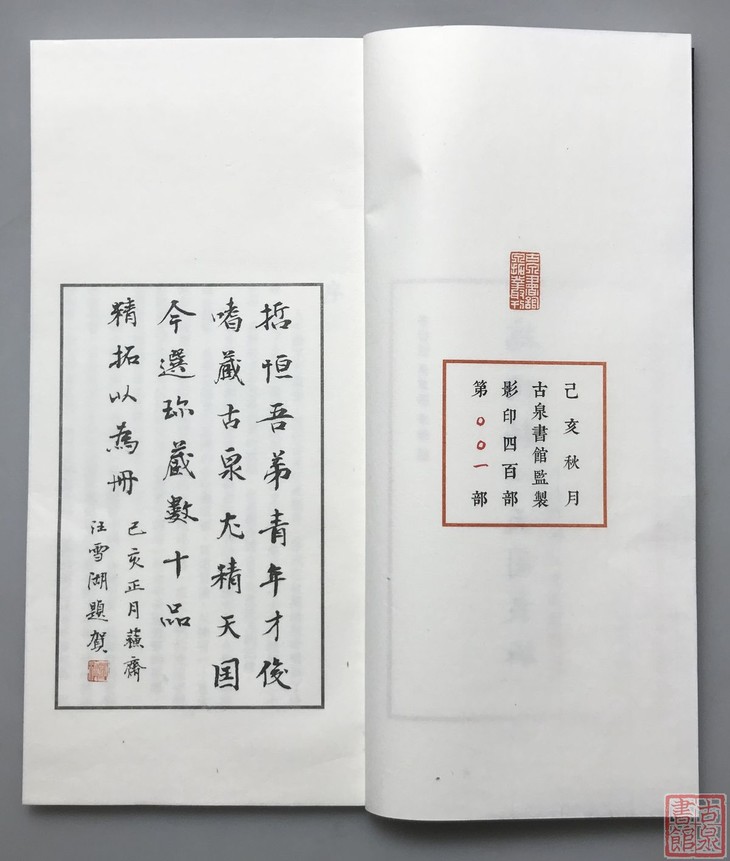 己亥秋月
古泉書館監製
影印四百部
第〇〇一部
哲恒吾弟青年才俊
嗜藏古泉尤精天国
今選珎藏數十品
精拓以為冊
己亥正月蘓齋
汪雪湖題賀
古泉書館